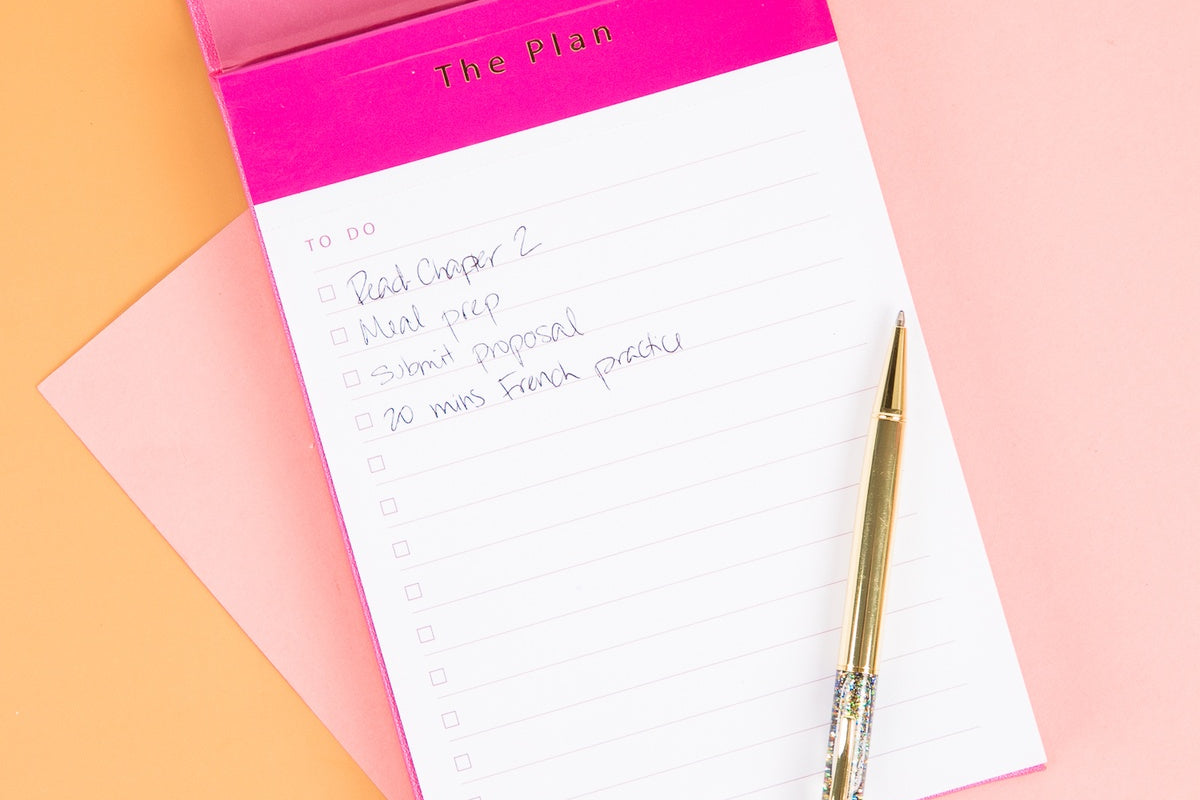 The Plan
TO DO
Read Chaper 2
Meal prep
Submit proposal
20 mins French practice